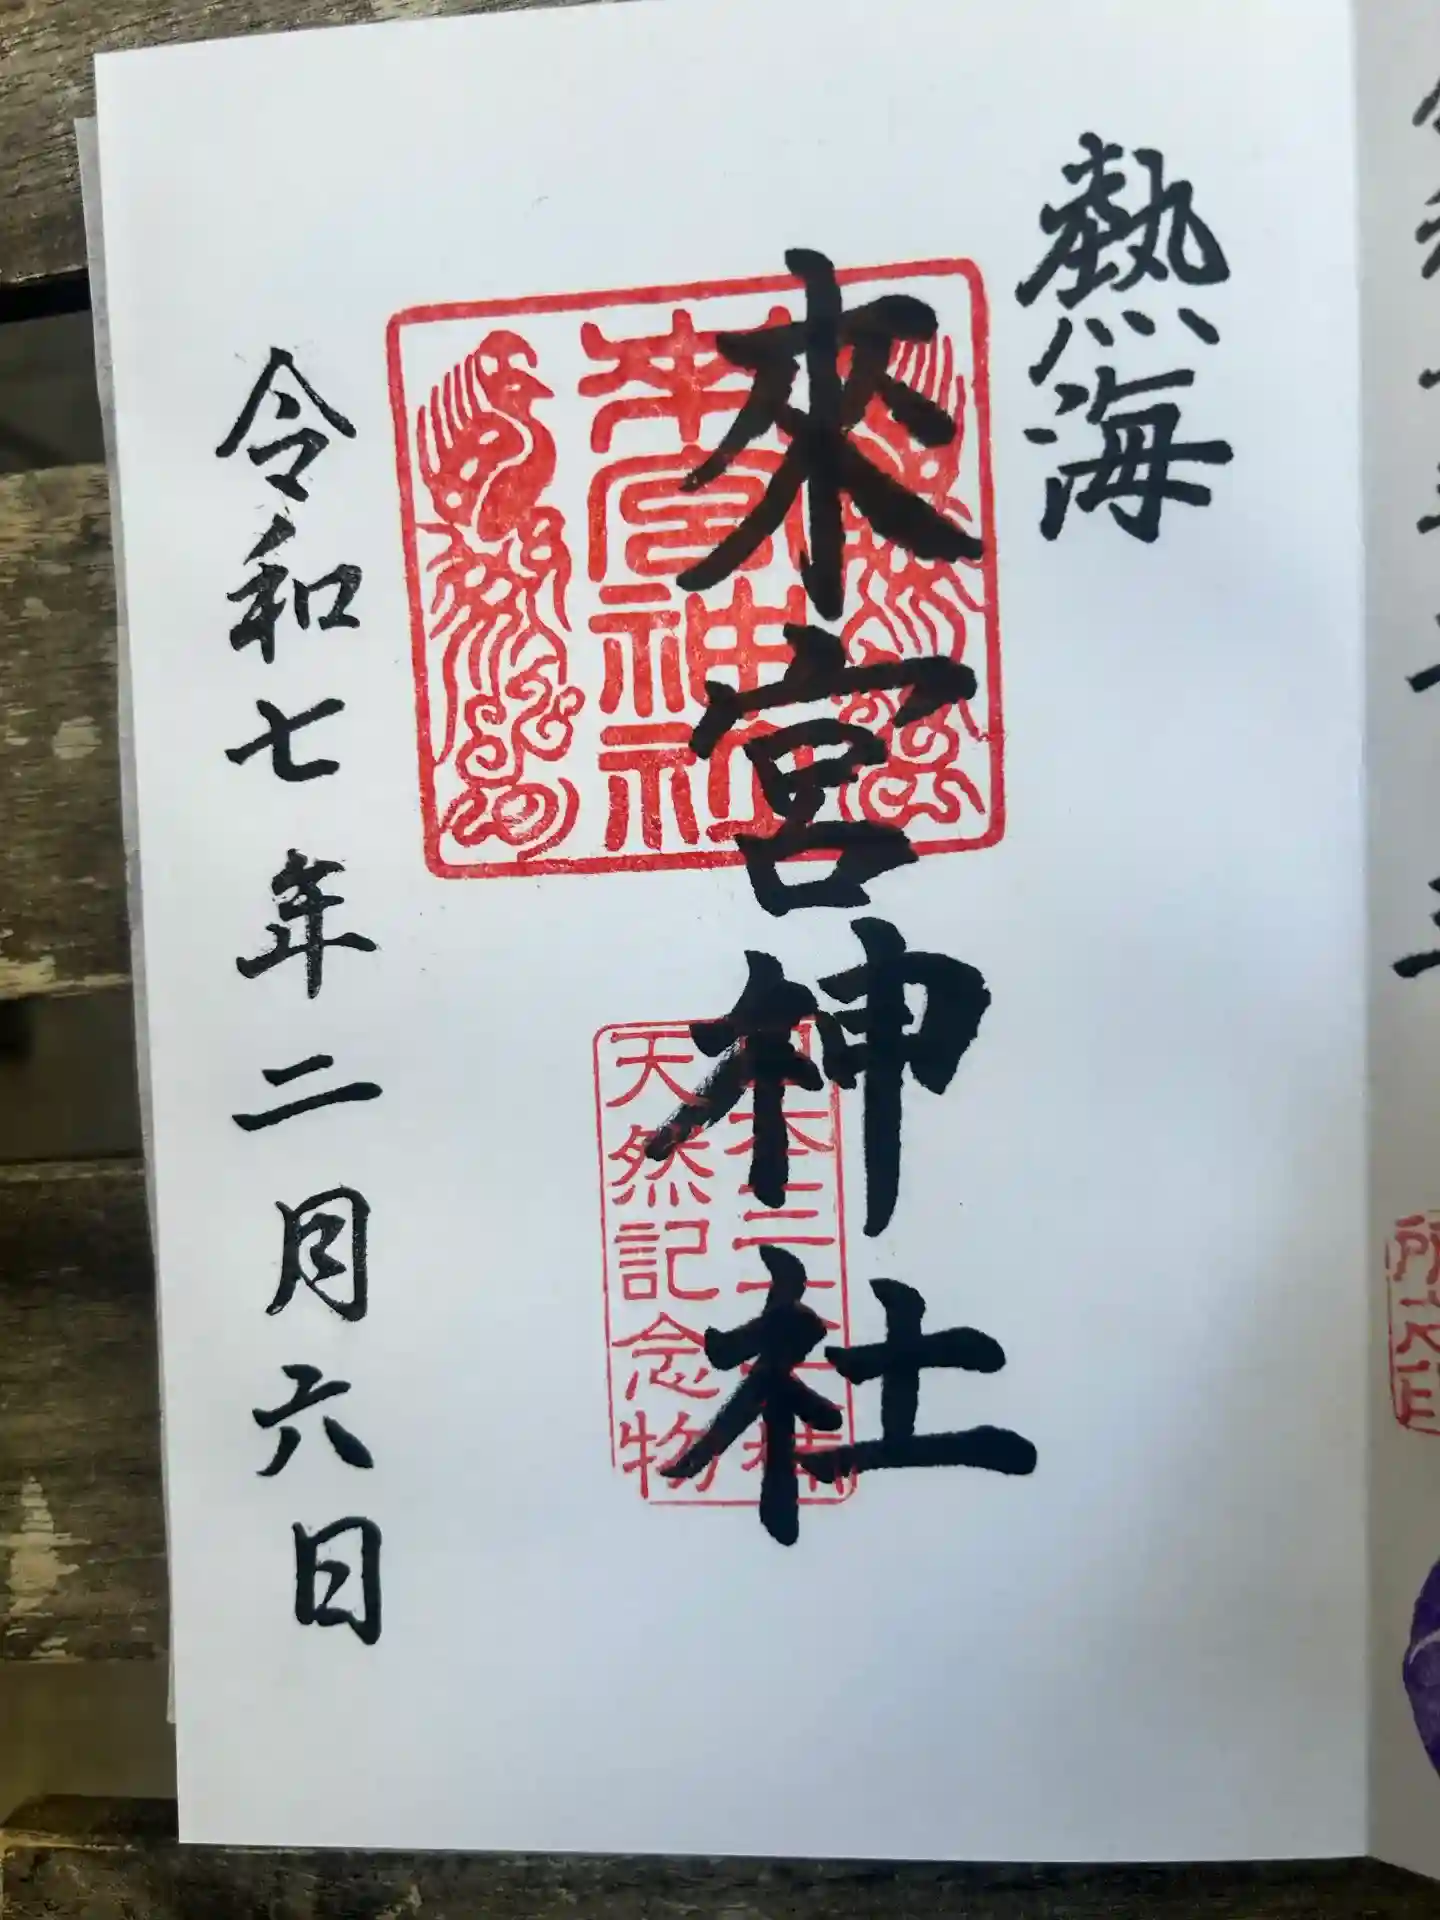 熱海
來宮神社
來宮神社
日本三大大楠
天然記念物
令和七年二月六日